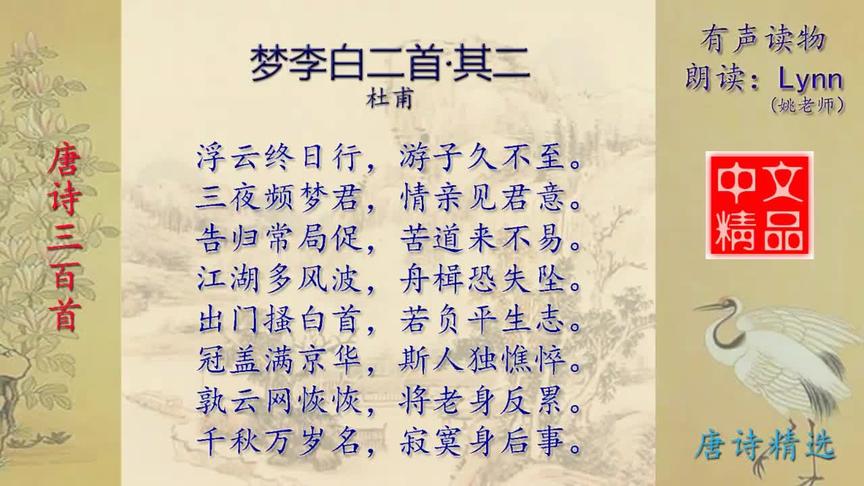 梦李白二首·其二
杜甫
浮云终日行，游子久不至。
三夜频梦君，情亲见君意。
告归常局促，苦道来不易。
江湖多风波，舟楫恐失坠。
出门搔白首，若负平生志。
冠盖满京华，斯人独憔悴。
孰云网恢恢，将老身反累。
千秋万岁名，寂寞身后事。
唐诗三百首
有声读物
朗读：Lynn
（姚老师）
中文
精品
唐诗精选